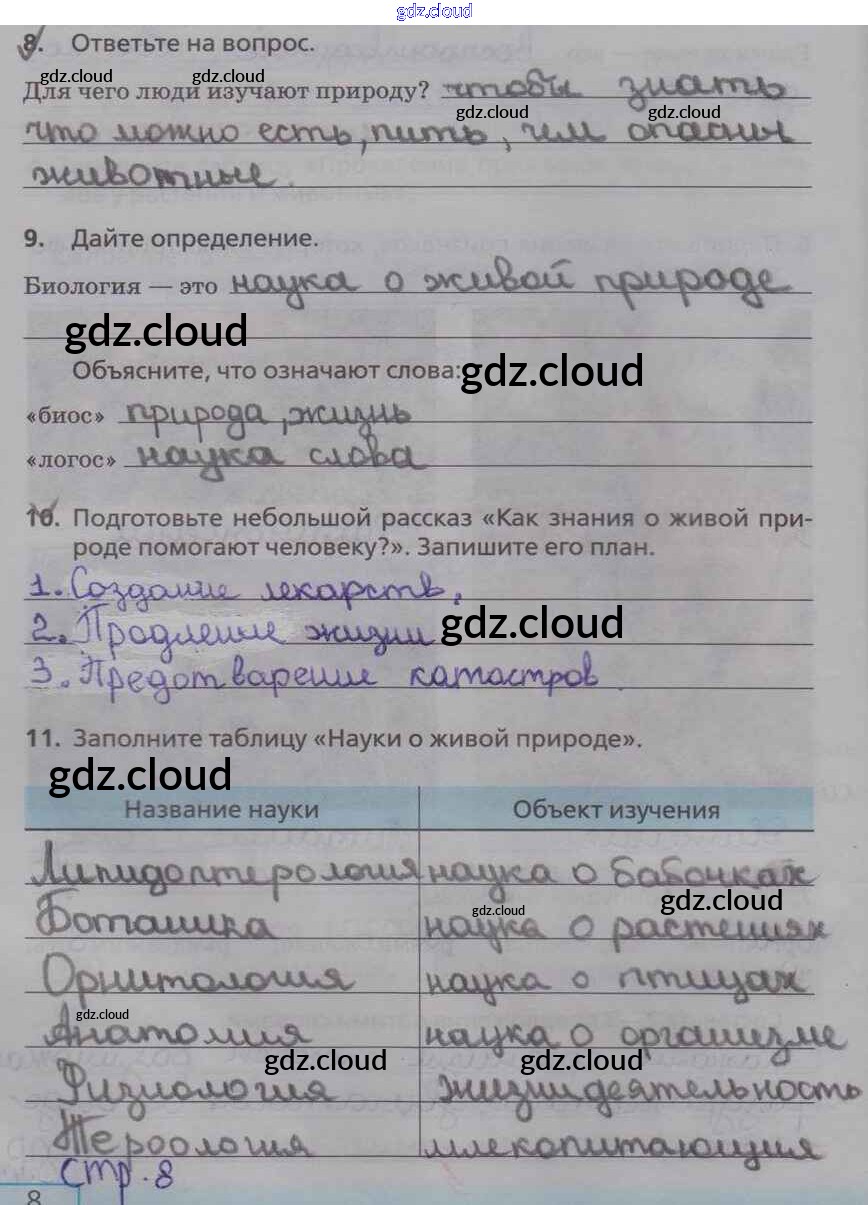 gdz.cloud
8. Ответьте на вопрос.
gdz.cloud gdz.cloud
Для чего люди изучают природу? чтобы знать
gdz.cloud gdz.cloud
что можно есть, пить, чем опасны
животные.
9. Дайте определение.
Биология — это наука о живой природе
gdz.cloud
Объясните, что означают слова:
gdz.cloud
«биос» природа, жизнь
«логос» наука слова
10. Подготовьте небольшой рассказ «Как знания о живой при-
роде помогают человеку?». Запишите его план.
1. Создание лекарств.
2. Продление жизни gdz.cloud
3. Предотварение катостров.
11. Заполните таблицу «Науки о живой природе».
gdz.cloud
Название науки Объект изучения
Липидоптерология наука о бабочках
gdz.cloud gdz.cloud
Ботаника наука о растениях
Орнитология наука о птицах
gdz.cloud
Анатомия наука о организме
gdz.cloud gdz.cloud
Физиология жизнидеятельность
Тероология млекопитающия
стр. 8
8